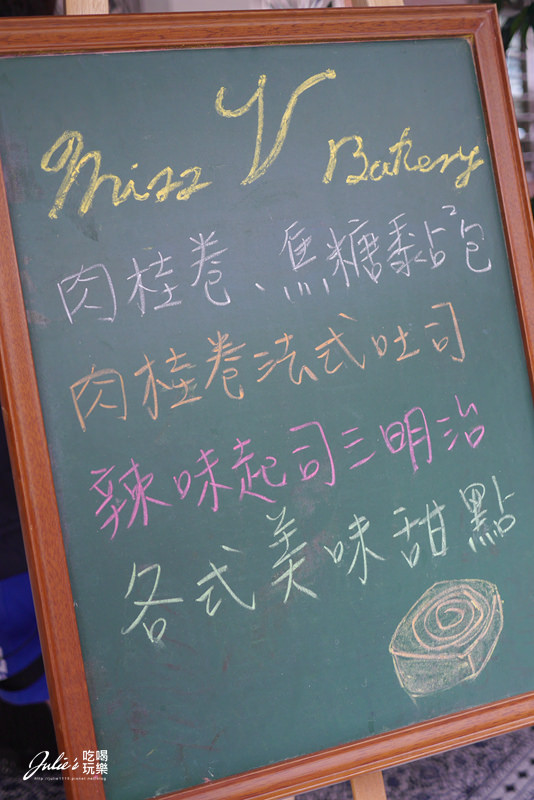 Miss V Bakery
肉桂卷、焦糖黏²包
肉桂卷法式吐司
辣味起司三明治
各式美味甜點
Julie's 吃喝玩樂